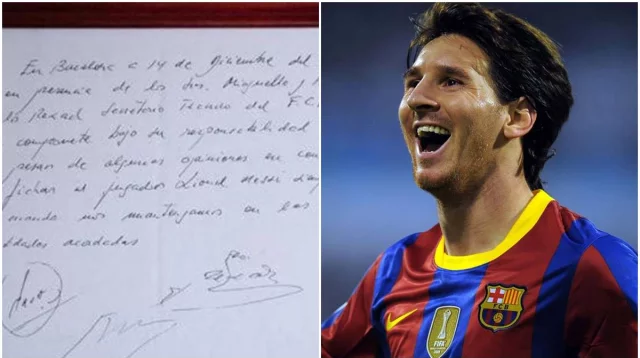 En Barcelona a 14 de Diciembre del
en presencia de los Srs. Minguella y
Rexach Secretario Tecnico del F.C.
compromete bajo su responsabilidad
pesar de algunas opiniones en con
fichar al jugador Lionel Messi
nos mantengamos en las
tidades acordadas
FCB
FIFA